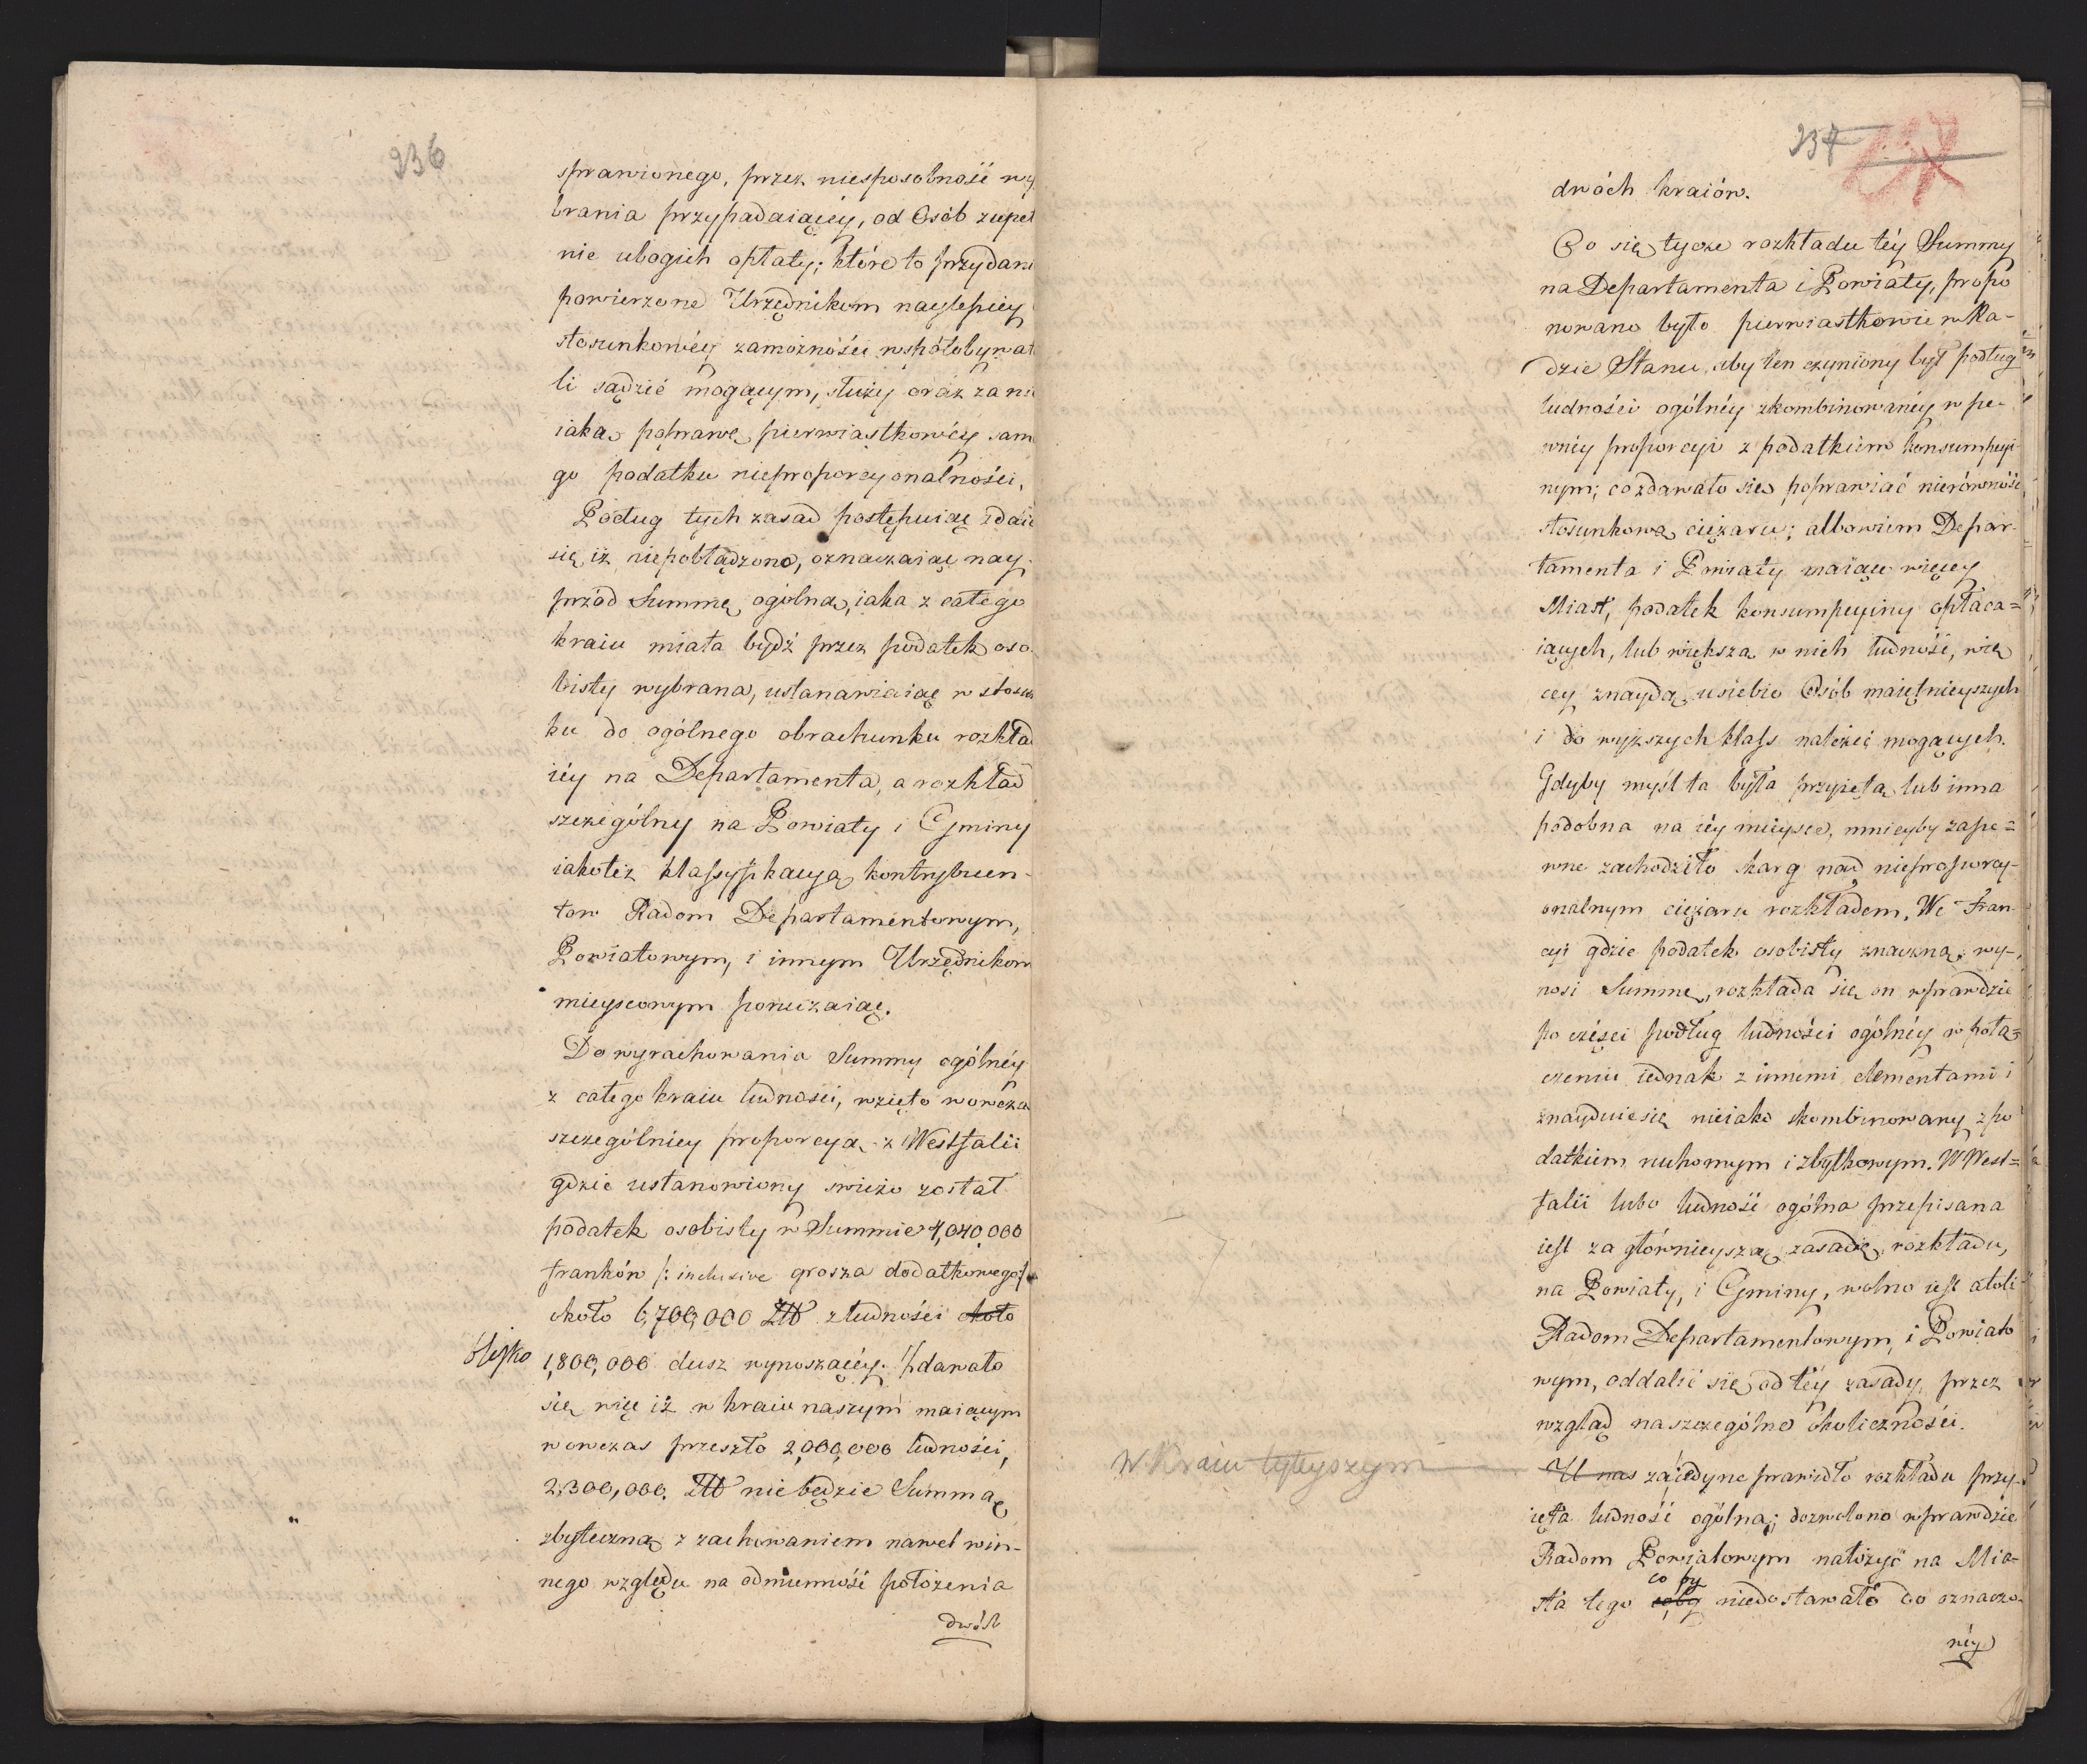 236
sprawionego, przez niesposobność wy
brania przypadaiącéy, od Osób zupeł
nie ubogich opłaty; które to przydani
powierzone Urzędnikom naylepiéy
stosunkowéy zamożności współobywat
li sądzić mogącym, służy oraz za nie
iaką poprawę pierwiastkowéy sam
go podatku nieproporcyonalności,
Podług tych zasad postępuiąc zdaie
się, iż niepobłądzono, oznaczaiąc nay-
przód Summę ogólną, iaka z całego
kraiu miała bydź przez podatek oso-
bisty wybrana, ustanawiaiąc w stosun
ku do ogólnego obrachunku rozkład
iéy na Departamenta, a rozkład
szczególny na Powiaty i Gminy
iakoteż klassyfikacyą kontrybuen-
tow Radom Departamentowym,
Powiatowym, i innym Urzędnikom
mieyscowym poruczaiąc.
Do wyrachowania Summy ogólnéy
z całego kraiu ludności, wzięto wowcza
szczególniey proporcyą z Westfalii
gdzie ustanowiony swieżo został
podatek osobisty w Summie 4,040,000
franków /: inclusive grosza dodatkowego:/
około 6,700,000 Złł z ludności około
blisko 1,800,000 dusz wynoszącéy. Zdawało
się więc iż w kraiu naszym maiącym
wowczas przeszło 2,000,000 ludności,
2,300,000. Złł nie będzie Summą
zbyteczną z zachowaniem nawet win-
nego względu na odmienność położenia
dwóch
237
dwóch kraiów.
Co się tycze rozkładu téy Summy
na Departamenta i Powiaty, propo
nowano było pierwiastkowie w Ra-
dzie Stanu, aby ten czyniony był podług
ludności ogólnéy skombinowanéy w pe-
wnéy proporcyi z podatkiem konsumpcyi
nym; co zdawało się poprawiać nierówność
stosunkową ciężaru; albowiem Depar-
tamenta i Powiaty maiące więcey
Miast, podatek konsumpcyiny opłaca=
iących, lub większą w nich ludność, wię
cey znaydą u siebie Osób maiętnieyszych
i do wyższych klass należeć mogących.
Gdyby myśl ta była przyięta lub inna
podobna na iéy mieysce, mnieyby zape=
wne zachodziło skarg nad nieproporcy-
onalnym ciężaru rozkładem. We Fran-
cyi gdzie podatek osobisty znaczną wy-
nosi Summę, rozkłada się on wprawdzie
po części podług ludności ogólnéy w połą=
czeniu iednak z innemi elementami i
znayduie się nieiako skombinowany z po
datkiem ruchomym i zbytkowym. W West=
falii lubo ludność ogólna przepisana
iest za główneyszą zasadę rozkładu,
na Powiaty, i Gminy, wolno iest atoli
Radom Departamentowym, i Powiato
wym, oddalić się od téy zasady przez
wzgląd na szczególne okoliczności.
W Kraiu tuteyszym
U nas za iedyne prawidło rozkładu przy-
ięta ludność ogólna; dozwolono wprawdzie
Radom Powiatowym nałożyć na Mia-
co by
sta tego coby niedostawało do oznaczo-
néy